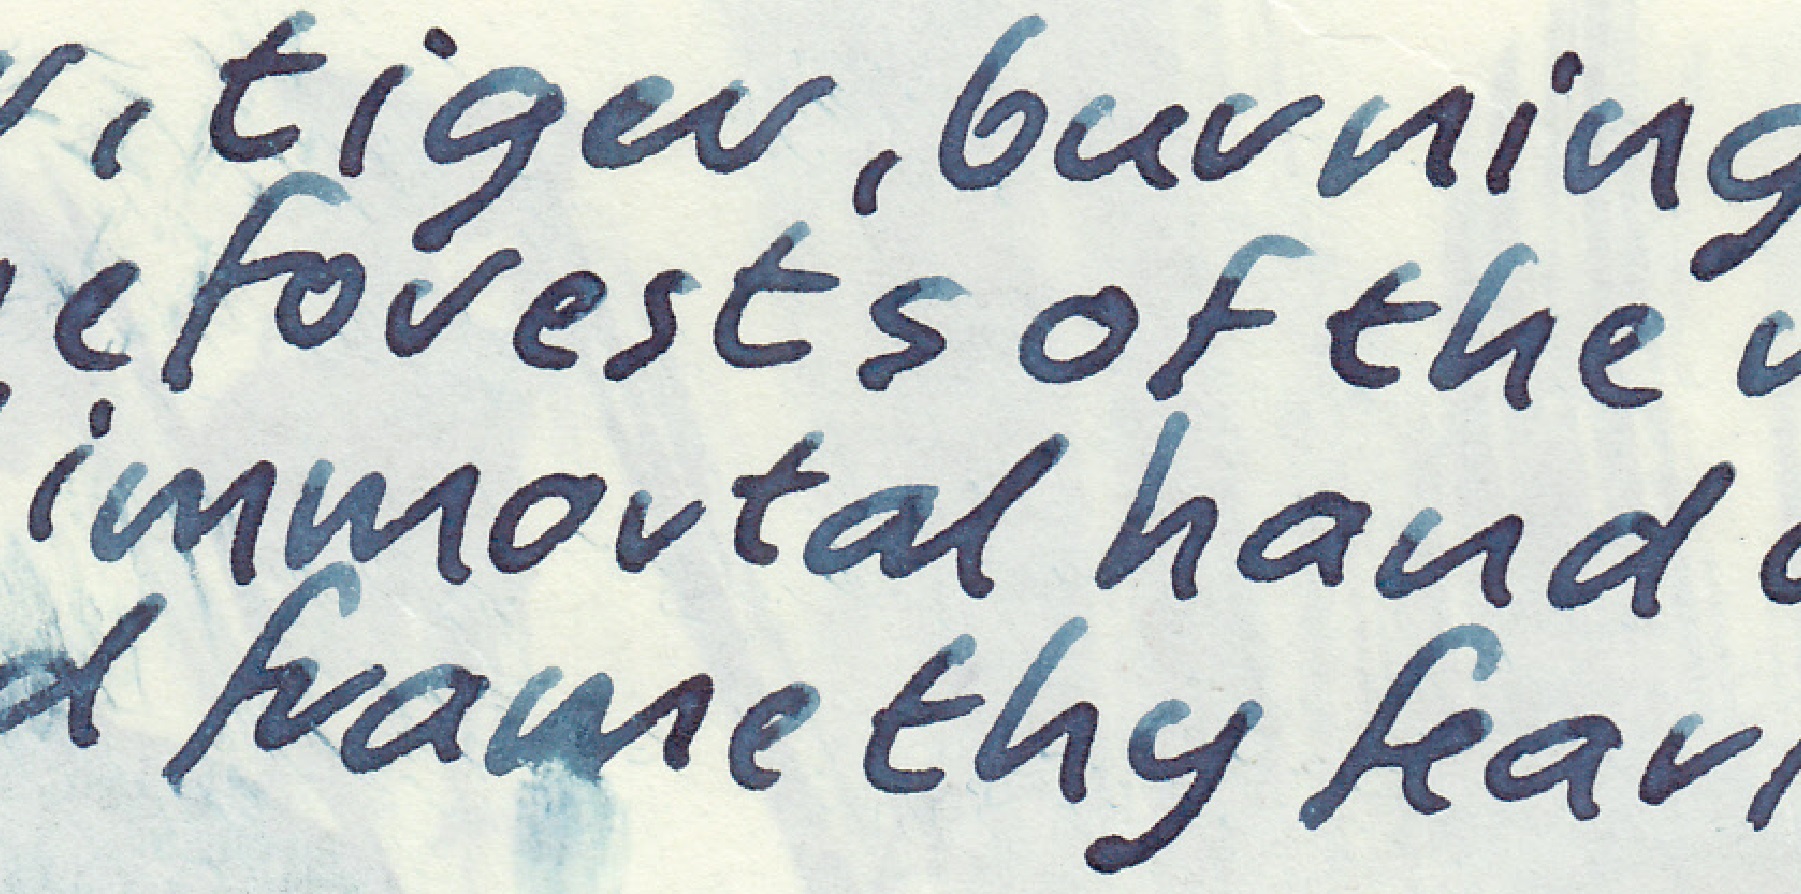 r, tiger, burning
e forests of the
immortal hand o
d frame thy fear